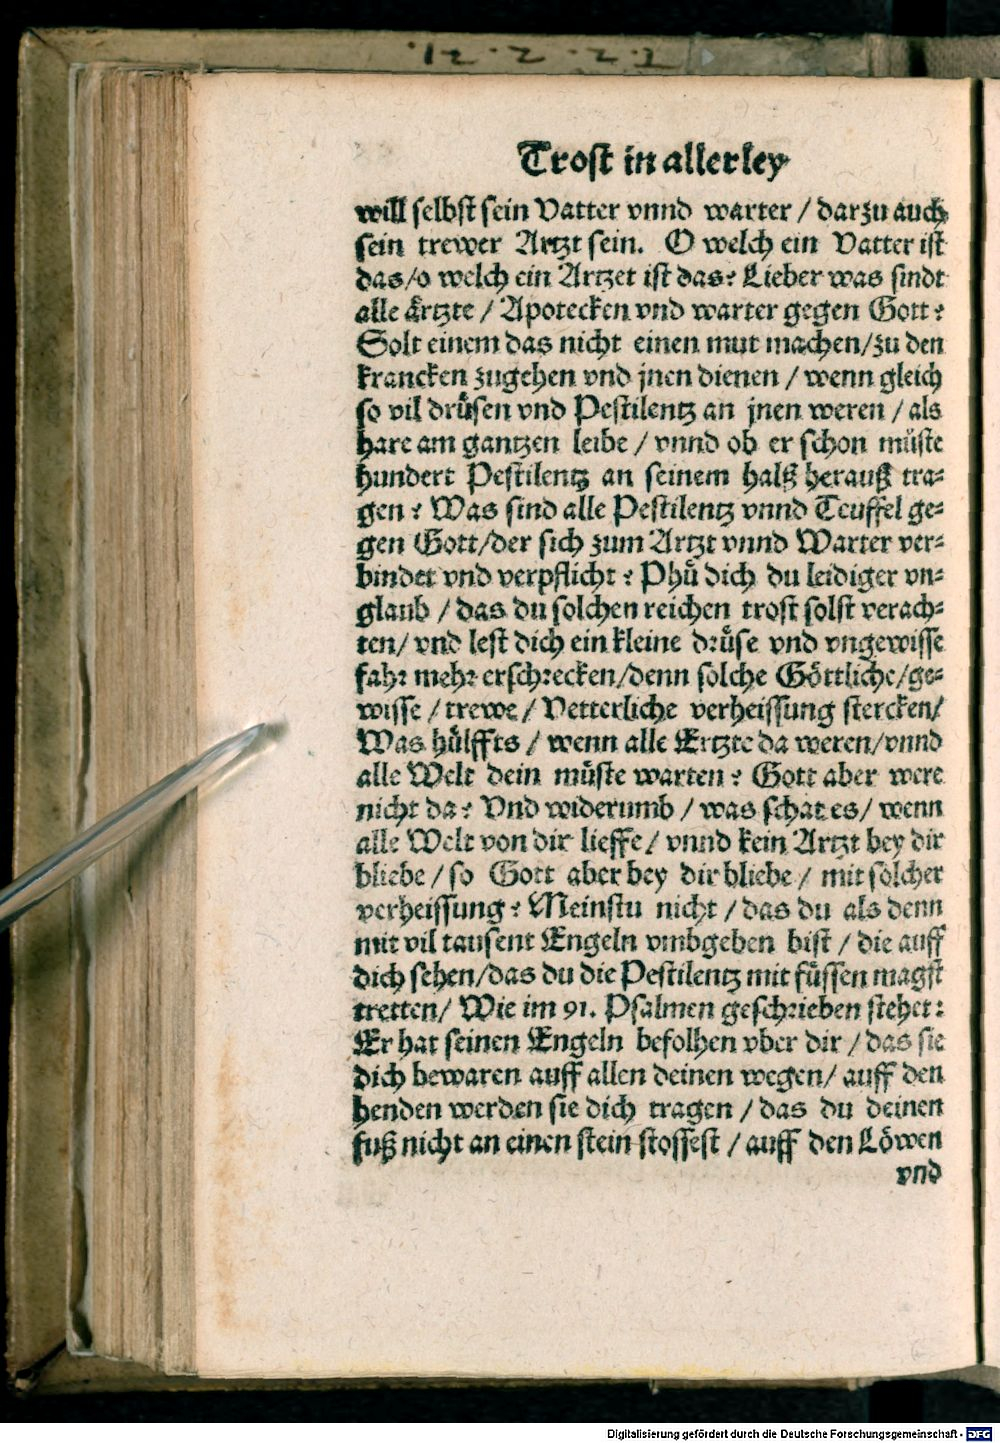 Trost in allerley
will selbst sein Vatter vnnd warter / darzu auch
sein trewer Artzt sein. O welch ein Vatter ist
das/o welch ein Artzet ist das? Lieber was sindt
alle ärtzte / Apotecken vnd warter gegen Gott?
Solt einem das nicht einen mut machen/zu den
krancken zugehen vnd jnen dienen / wenn gleich
so vil drüsen vnd Pestilentz an jnen weren / als
hare am gantzen leibe / vnnd ob er schon müste
hundert Pestilentz an seinem halß herauß tra-
gen? Was sind alle Pestilentz vnnd Teuffel ge-
gen Gott/der sich zum Artzt vnnd Warter ver-
bindet vnd verpflicht? Phü dich du leidiger vn-
glaub / das du solchen reichen trost solst verach-
ten/ vnd lest dich ein kleine drüse vnd vngewisse
fahr mehr erschrecken/denn solche Göttliche/ge-
wisse / trewe / Vetterliche verheissung stercken/
Was hülffts / wenn alle Ertzte da weren/vnnd
alle Welt dein müste warten? Gott aber were
nicht da? Vnd widerumb / was schat es/ wenn
alle Welt von dir lieffe / vnnd kein Artzt bey dir
bliebe / so Gott aber bey dir bliebe / mit solcher
verheissung? Meinstu nicht / das du als denn
mit vil tausent Engeln vmbgeben bist / die auff
dich sehen/das du die Pestilentz mit füssen magst
tretten/ Wie im 91. Psalmen geschrieben stehet:
Er hat seinen Engeln befolhen vber dir / das sie
dich bewaren auff allen deinen wegen/ auff den
henden werden sie dich tragen / das du deinen
fuß nicht an einen stein stossest / auff den Löwen
vnd
Digitalisierung gefördert durch die Deutsche Forschungsgemeinschaft - DFG